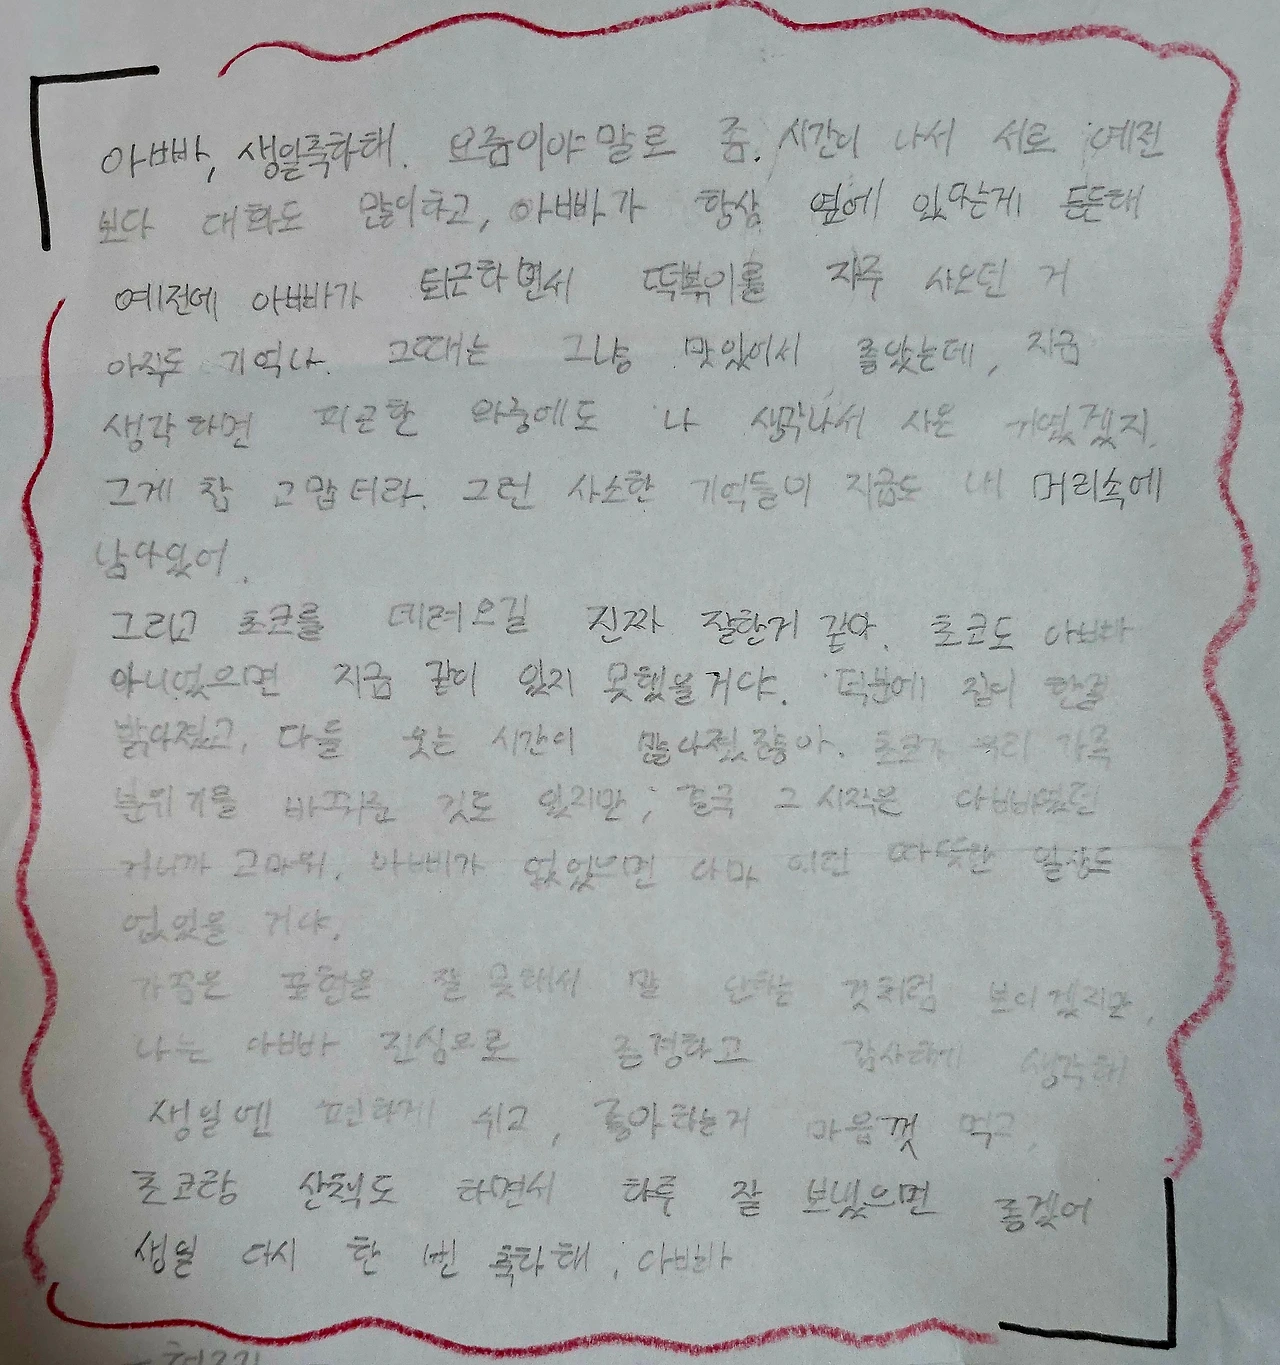 아빠, 생일축하해. 요즘이야말로 좀. 시간이 나서 서로 예전
보다 대화도 많이하고, 아빠가 항상 옆에 있다는게 든든해
예전에 아빠가 퇴근하면서 떡볶이를 자주 사오던 거
아직도 기억나. 그때는 그냥 맛있어서 좋았는데, 지금
생각하면 피곤한 와중에도 나 생각나서 사온 거였겠지.
그게 참 고맙더라. 그런 사소한 기억들이 지금도 내 머리속에
남아있어.
그리고 초코를 데려오길 진짜 잘한거 같아. 초코도 아빠
아니었으면 지금 같이 있지 못했을거야. 덕분에 집이 한결
밝아졌고, 다들 웃는 시간이 많아졌잖아. 초코가 우리 가족
분위기를 바꿔준 것도 있지만, 결국 그 시작은 아빠였던
거니까 고마워. 아빠가 없었으면 아마 이런 따뜻한 일상도
없었을 거야.
가끔은 표현을 잘 못해서 말 안하는 것처럼 보이겠지만,
나는 아빠 진심으로 존경하고 감사하게 생각해
생일엔 편하게 쉬고, 좋아하는거 마음껏 먹고,
초코랑 산책도 하면서 하루 잘 보냈으면 좋겠어
생일 다시 한 번 축하해, 아빠